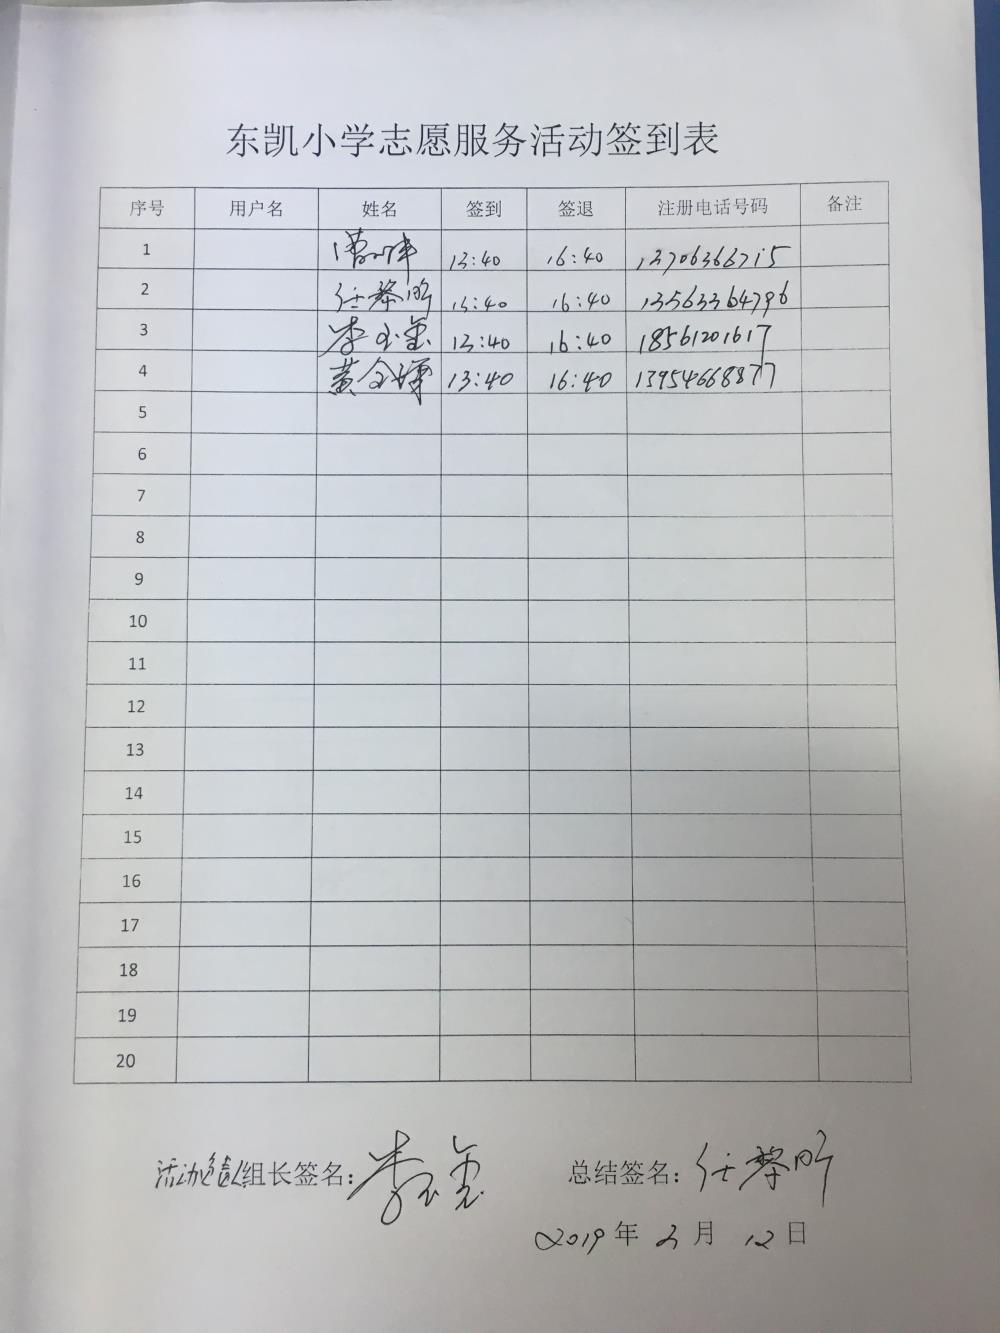 东凯小学志愿服务活动签到表
序号 用户名 姓名 签到 签退 注册电话号码 备注
1 13:40 16:40 13706366715
2 任黎明 13:40 16:40 13563364796
3 李玉玺 13:40 16:40 18561201617
4 黄金辉 13:40 16:40 13954668877
5
6
7
8
9
10
11
12
13
14
15
16
17
18
19
20
活动 组长签名：李玉玺 总结签名：任黎明
2019 年 3 月 12 日